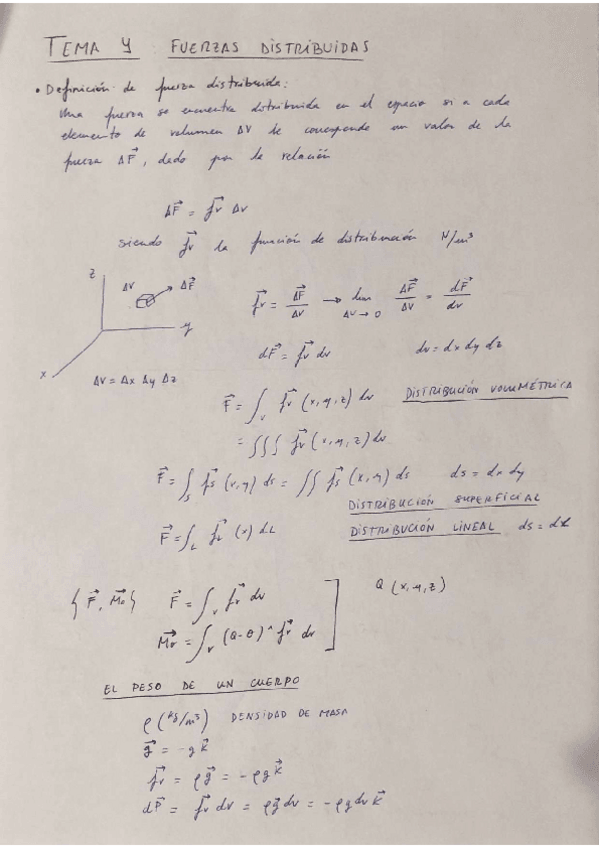 TEMA 4 FUERZAS DISTRIBUIDAS
• Definición de fuerza distribuida:
Una fuerza se encuentra distribuida en el espacio si a cada
elemento de volumen ΔV le corresponde un valor de la
fuerza ΔF⃗, dado por la relación
ΔF⃗ = f⃗v Δv
siendo f⃗v la función de distribución N/m³
z
ΔV ΔF⃗
y
x
ΔV = Δx Δy Δz
f⃗v = ΔF⃗/ΔV → lim ΔV→0 ΔF⃗/ΔV = dF⃗/dv
dF⃗ = f⃗v dv dv = dx dy dz
F⃗ = ∫v f⃗v (x,y,z) dv DISTRIBUCIÓN VOLUMÉTRICA
= ∫∫∫ f⃗v (x,y,z) dv
F⃗ = ∫s f⃗s (x,y) ds = ∫∫ f⃗s (x,y) ds ds = dx dy
DISTRIBUCIÓN SUPERFICIAL
F⃗ = ∫L f⃗L (x) dL DISTRIBUCIÓN LINEAL ds = dx
{F⃗, M⃗o} F⃗ = ∫v f⃗v dv Q (x,y,z)
M⃗o = ∫v (Q-O) ^ f⃗v dv
EL PESO DE UN CUERPO
ρ (kg/m³) DENSIDAD DE MASA
g⃗ = -g k⃗
f⃗v = ρg⃗ = -ρg k⃗
dP⃗ = f⃗v dv = ρg⃗ dv = -ρg dv k⃗